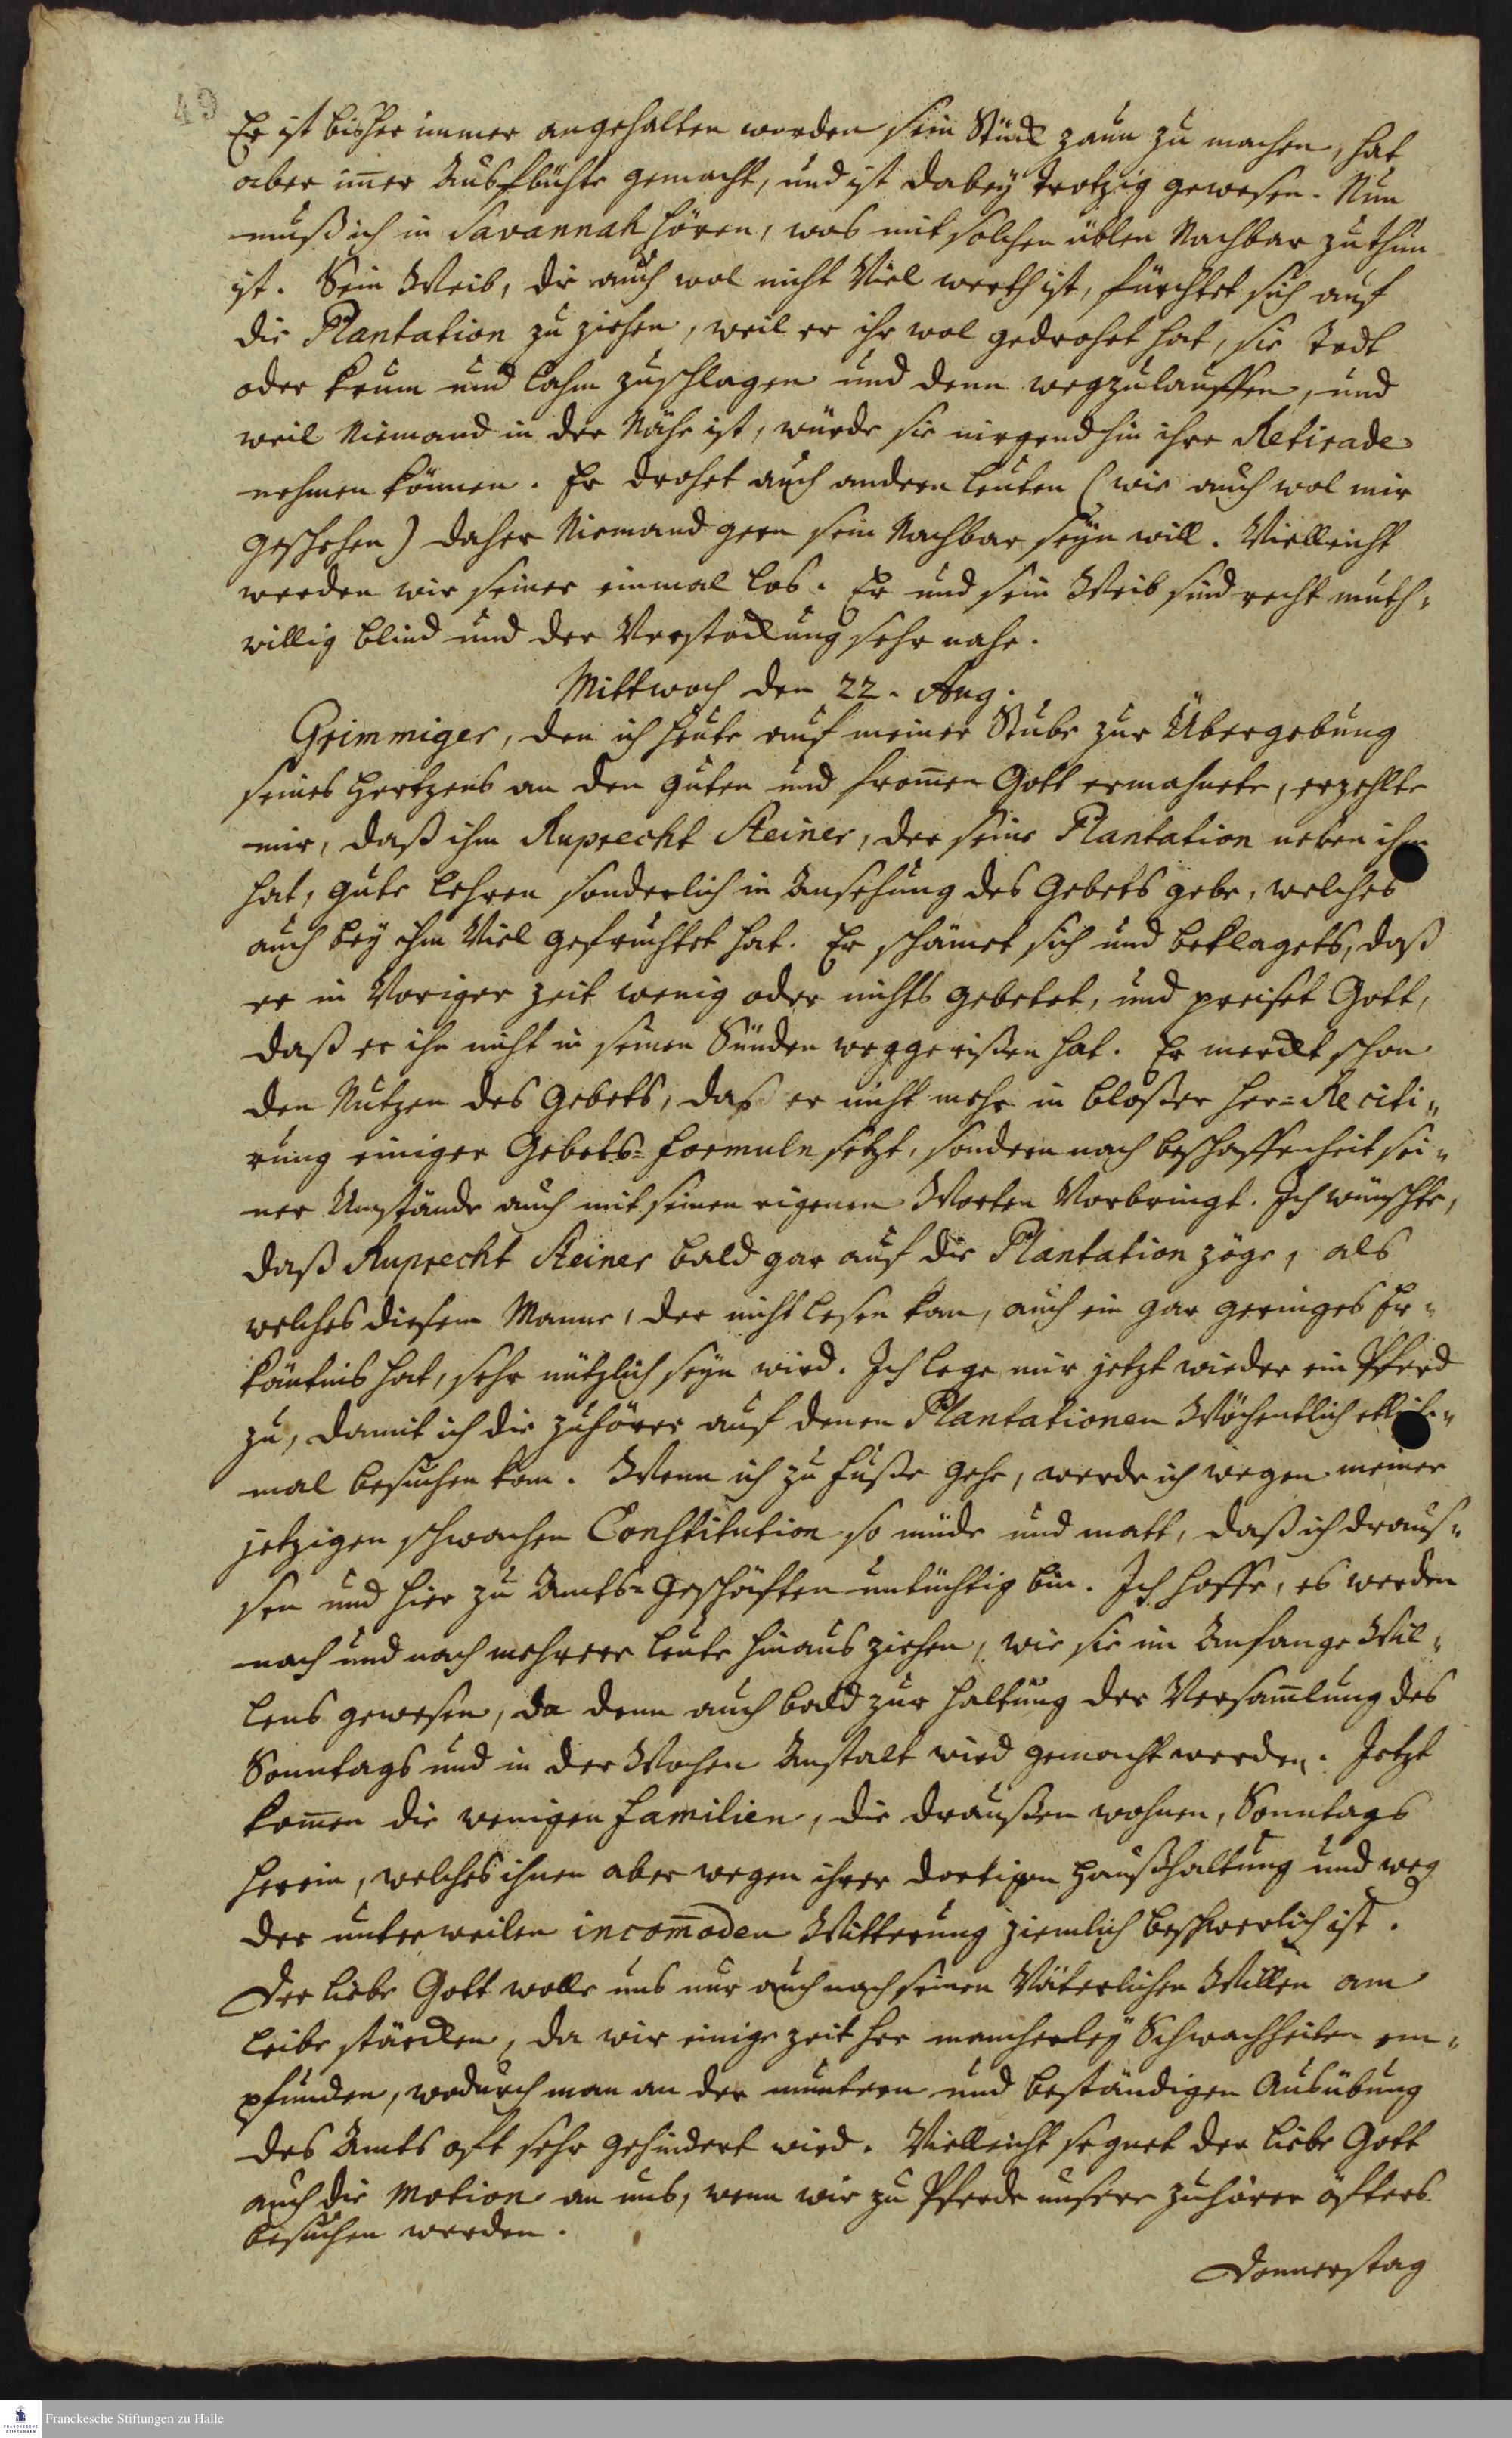 49
Er ist bisher immer angehalten worden sein Stück zaun zu machen, hat
aber im̄er Ausflüchte gemacht, und ist dabey trotzig gewesen. Nun
muß ich in Savannah hören, was mit solchen üblen Nachbar zu thun
ist. Sein Weib, die auch wol nicht Viel werth ist, fürchtet sich auf
die Plantation zu ziehen, weil er ihr wol gedrohet hat, sie todt
oder krum und lahm zuschlagen und denn wegzulauffen, und
weil Niemand in der Nähe ist, würde sie nirgend hin ihre Retirade
nehmen können. Er drohet auch andern Leuten (wie auch wol mir
geschehen) daher Niemand gern sein Nachbar seyn will. Vielleicht
werden wir seiner einmal los. Er und sein Weib sind recht muth-
willig blind und der Verstockung sehr nahe.
Mittwoch den 22. Aug.
Grimmiger, den ich heute auf meiner Stube zur Übergebung
seines Hertzens an den guten und from̄en Gott ermahnete, erzehlte
mir, daß ihm Ruprecht Steiner, der seine Plantation neben ihm
hat, gute Lehren sonderlich in Ansehung des Gebets gebe, welches
auch bey ihm Viel gefruchtet hat. Er schämet sich und beklagets, daß
er in Voriger Zeit wenig oder nichts gebetet, und preiset Gott,
daß er ihn nicht in seinen Sünden weggerißen hat. Er merckt schon
den Nutzen des Gebets, daß er nicht mehr in bloßer Her-Reciti-
rung einiger Gebets-Formuln setzt, sondern nach beschaffenheit sei-
ner Umstände auch mit seinen eigenen Worten Vorbringt. Ich wünschte,
daß Ruprecht Steiner bald gar auf die Plantation zöge, als
welches diesem Manne, der nicht lesen kan, auch ein gar geringes Er-
käntnis hat, sehr nützlich seyn wird. Ich lege mir jetzt wieder ein Pferd
zu, damit ich die Zuhörer auf denen Plantationen Wöchentlich etliche-
mal besuchen kan. Wenn ich zu Fuße gehe, werde ich wegen meiner
jetzigen schwachen Constitution so müde und matt, daß ich draus-
sen und hier zu Amts-Geschäften untüchtig bin. Ich hoffe, es werden
nach und nach mehrere Leute hinaus ziehen, wie sie im Anfange Wil-
lens gewesen, da denn auch bald zur Haltung der Versam̄lung des
Sonntags und in der Wochen Anstalt wird gemacht werden. Jetzt
kom̄en die wenigen Familien, die draußen wohnen, Sonntags
herein, welches ihnen aber wegen ihrer dortigen Haußhaltung und weg
der unterweilen incom̄oden Witterung ziemlich beschwerlich ist.
Der liebe Gott wolle uns nur auch nach seinen Väterlichen Willen am
Leibe stärcken, da wir einige Zeit her mancherley Schwachheiten em-
pfunden, wodurch man an der muntern und beständigen Ausübung
des Amts oft sehr gehindert wird. Vielleicht segnet der liebe Gott
auch die Motion an uns, wenn wir zu Pferde unsere Zuhörer öfters
besuchen werden.
Donnerstag
FRANCKESCHE STIFTUNGEN
Franckesche Stiftungen zu Halle